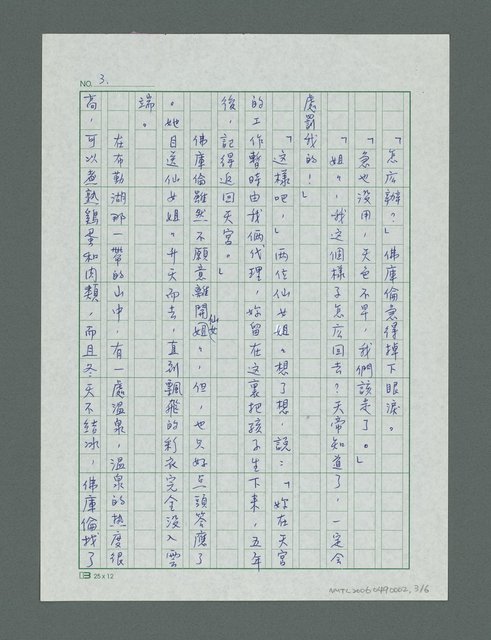 NO. 3.
「怎么辦？」佛庫倫急得掉下眼淚。
「急也沒用，天色不早，我們該走了。」
「姐々，我這個樣子怎么回去？天帝知道了，一定会
處罰我的！」
「這樣吧，」兩位仙女姐々想了想，說：「妳在天宮
的工作暫時由我倆代理，妳留在這裏把孩子生下來，五年
後，記得返回天宮。」
佛庫倫雖然不願意離開仙女姐々，但，也只好点頭答應了
。她目送仙女姐々升天而去，直到飄飛的彩衣完全沒入雲
端。
在布勒湖那一帶的山中，有一處温泉，温泉的热度很
高，可以煮熟鷄蛋和肉類，而且冬天不结冰，佛庫倫找了
25 x 12
NMTL20060490002, 3/6